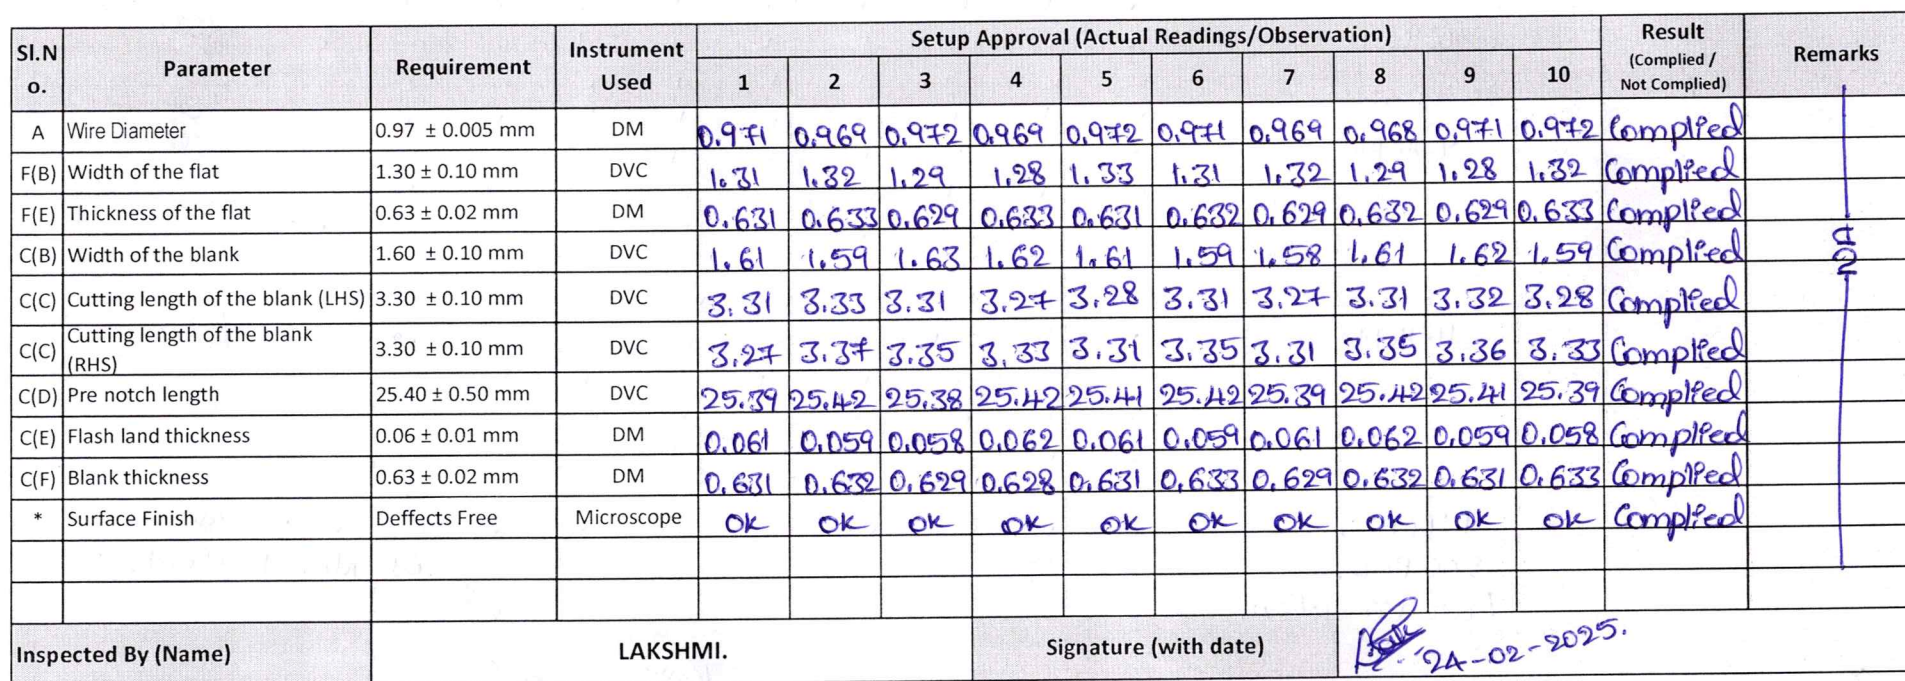 Sl.No. Parameter Requirement Instrument Used Setup Approval (Actual Readings/Observation) Result (Complied / Not Complied) Remarks
1 2 3 4 5 6 7 8 9 10
A Wire Diameter 0.97 ± 0.005 mm DM 0.971 0.969 0.972 0.969 0.972 0.971 0.969 0.968 0.971 0.972 Complied
F(B) Width of the flat 1.30 ± 0.10 mm DVC 1.31 1.32 1.29 1.28 1.33 1.31 1.32 1.29 1.28 1.32 Complied
F(E) Thickness of the flat 0.63 ± 0.02 mm DM 0.631 0.633 0.629 0.633 0.631 0.632 0.629 0.632 0.629 0.633 Complied
C(B) Width of the blank 1.60 ± 0.10 mm DVC 1.61 1.59 1.63 1.62 1.61 1.59 1.58 1.61 1.62 1.59 Complied
C(C) Cutting length of the blank (LHS) 3.30 ± 0.10 mm DVC 3.31 3.33 3.31 3.27 3.28 3.31 3.27 3.31 3.32 3.28 Complied
C(C) Cutting length of the blank (RHS) 3.30 ± 0.10 mm DVC 3.27 3.37 3.35 3.33 3.31 3.35 3.31 3.35 3.36 3.33 Complied
C(D) Pre notch length 25.40 ± 0.50 mm DVC 25.39 25.42 25.38 25.42 25.41 25.42 25.39 25.42 25.41 25.39 Complied
C(E) Flash land thickness 0.06 ± 0.01 mm DM 0.061 0.059 0.058 0.062 0.061 0.059 0.061 0.062 0.059 0.058 Complied
C(F) Blank thickness 0.63 ± 0.02 mm DM 0.631 0.632 0.629 0.628 0.631 0.633 0.629 0.632 0.631 0.633 Complied
* Surface Finish Deffects Free Microscope OK OK OK OK OK OK OK OK OK OK Complied
Inspected By (Name) LAKSHMI. Signature (with date) 24-02-2025.